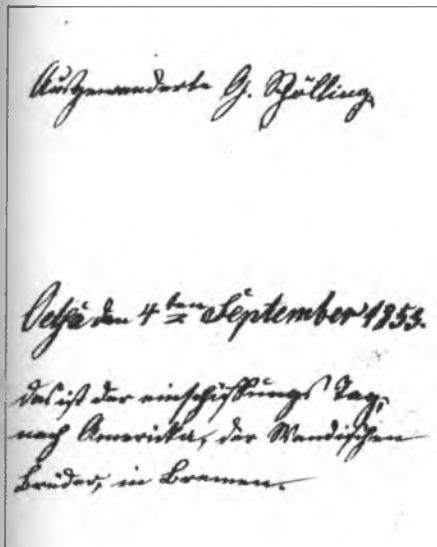 Ausgewanderte G. Schölling,
Oelsa den 4ten September 1853.
das ist der einschiffungs Tag,
nach Americka, der Wendischen
Brüder, in Bremen.